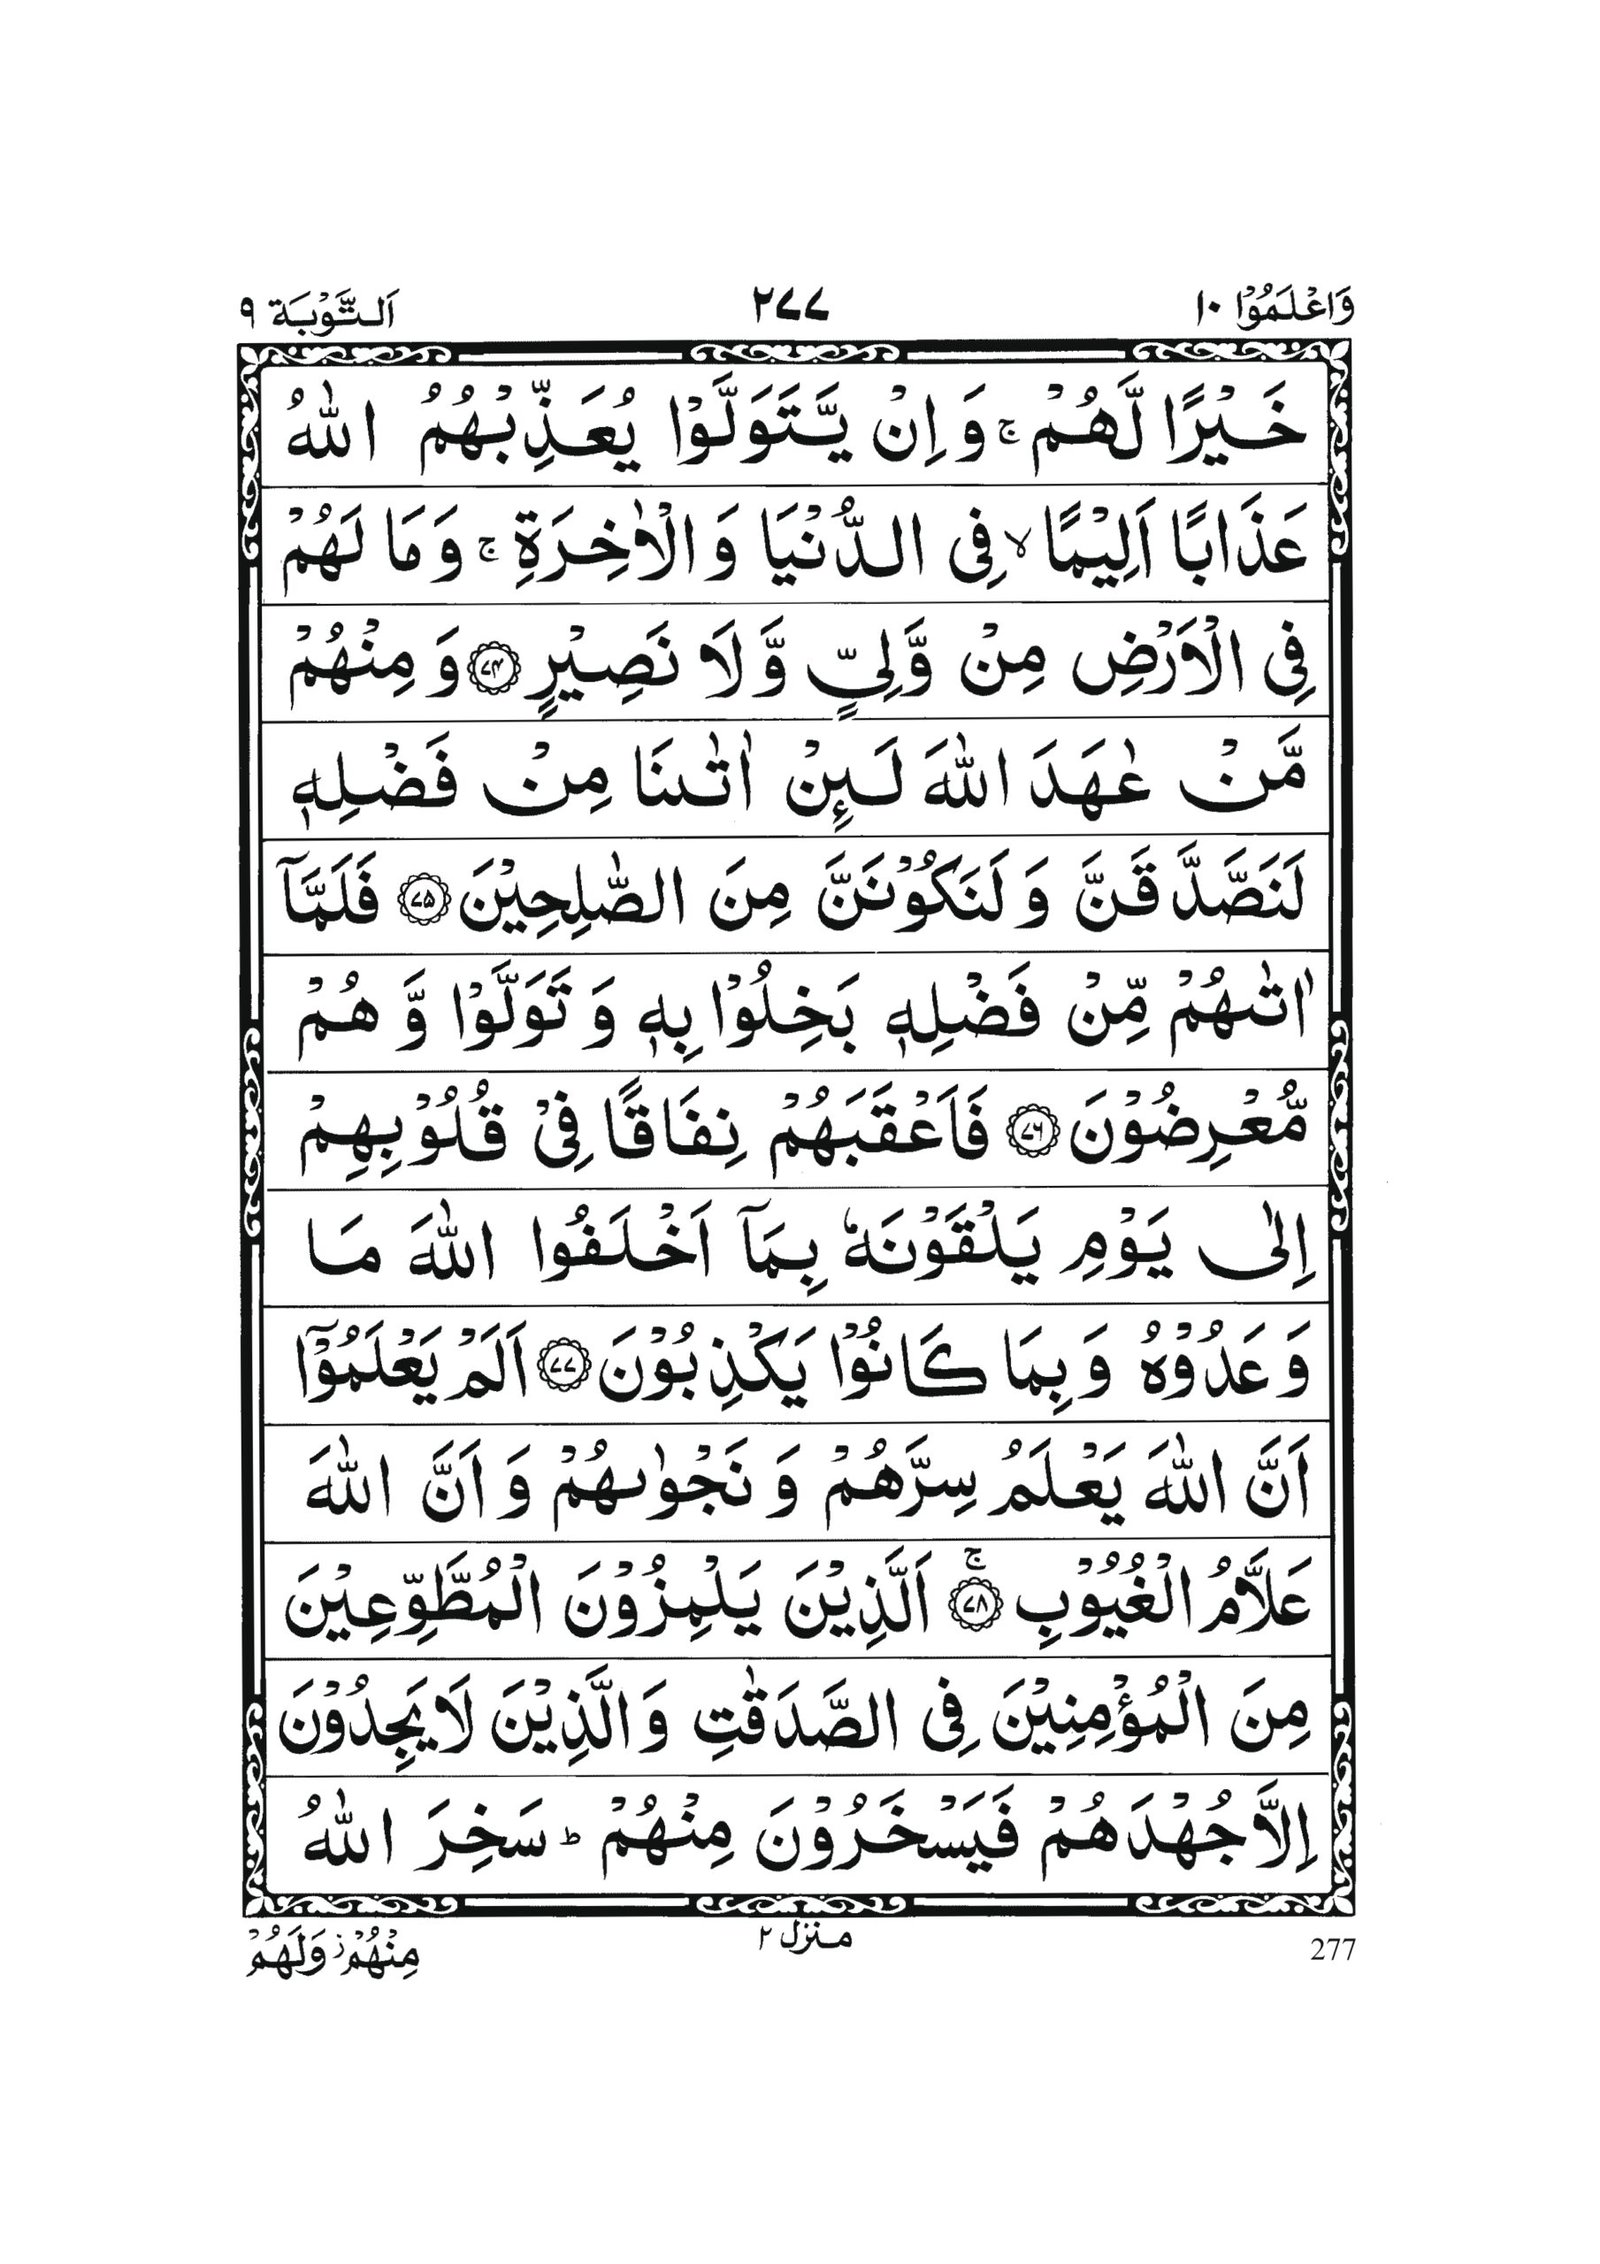 وَاعْلَمُوْٓا ۱۰
۲۷۷
اَلتَّوْبَة ۹
خَيْرًا لَّهُمْ ۚ وَ اِنْ يَّتَوَلَّوْا يُعَذِّبْهُمُ اللّٰهُ
عَذَابًا اَلِيْمًا ۙ فِى الدُّنْيَا وَ الْاٰخِرَةِ ۚ وَ مَا لَهُمْ
فِى الْاَرْضِ مِنْ وَّلِىٍّ وَّ لَا نَصِيْرٍ ﴿۷۴﴾ وَ مِنْهُمْ
مَّنْ عٰهَدَ اللّٰهَ لَئِنْ اٰتٰىنَا مِنْ فَضْلِهٖ
لَنَصَّدَّقَنَّ وَ لَنَكُوْنَنَّ مِنَ الصّٰلِحِيْنَ ﴿۷۵﴾ فَلَمَّآ
اٰتٰىهُمْ مِّنْ فَضْلِهٖ بَخِلُوْا بِهٖ وَ تَوَلَّوْا وَّ هُمْ
مُّعْرِضُوْنَ ﴿۷۶﴾ فَاَعْقَبَهُمْ نِفَاقًا فِىْ قُلُوْبِهِمْ
اِلٰى يَوْمِ يَلْقَوْنَهٗ بِمَآ اَخْلَفُوا اللّٰهَ مَا
وَعَدُوْهُ وَ بِمَا كَانُوْا يَكْذِبُوْنَ ﴿۷۷﴾ اَلَمْ يَعْلَمُوْٓا
اَنَّ اللّٰهَ يَعْلَمُ سِرَّهُمْ وَ نَجْوٰىهُمْ وَ اَنَّ اللّٰهَ
عَلَّامُ الْغُيُوْبِ ﴿۷۸﴾ ۚ اَلَّذِيْنَ يَلْمِزُوْنَ الْمُطَّوِّعِيْنَ
مِنَ الْمُؤْمِنِيْنَ فِى الصَّدَقٰتِ وَ الَّذِيْنَ لَا يَجِدُوْنَ
اِلَّا جُهْدَهُمْ فَيَسْخَرُوْنَ مِنْهُمْ ؕ سَخِرَ اللّٰهُ
مِنْهُمْ ؗ وَلَهُمْ
منزل ۲
277